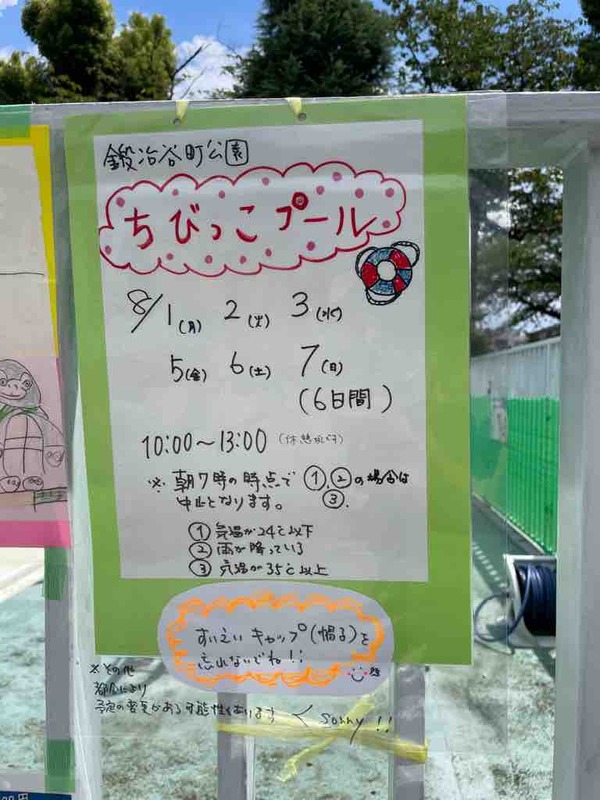 鍛冶谷町公園
ちびっこプール
8/1(月) 2(火) 3(水)
5(金) 6(土) 7(日)
(6日間)
10:00～13:00 (休憩なし)
※朝7時の時点で①,②の場合は
③.
中止となります。
①気温が24℃以下
②雨が降っている
③気温が35℃以上
すいえいキャップ(帽子)を
忘れないでね!!
※その他
都合により
予定の変更がある可能性もあります
Sorry!!